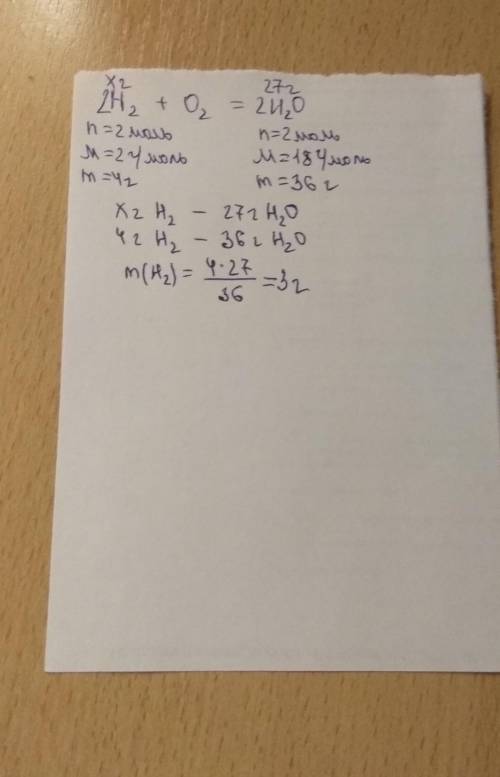 xг 27г
2H₂ + O₂ = 2H₂O
n=2моль n=2моль
M=2г/моль M=18г/моль
m=4г m=36г
xг H₂ – 27г H₂O
4г H₂ – 36г H₂O
m(H₂) = 4·27/36 = 3г